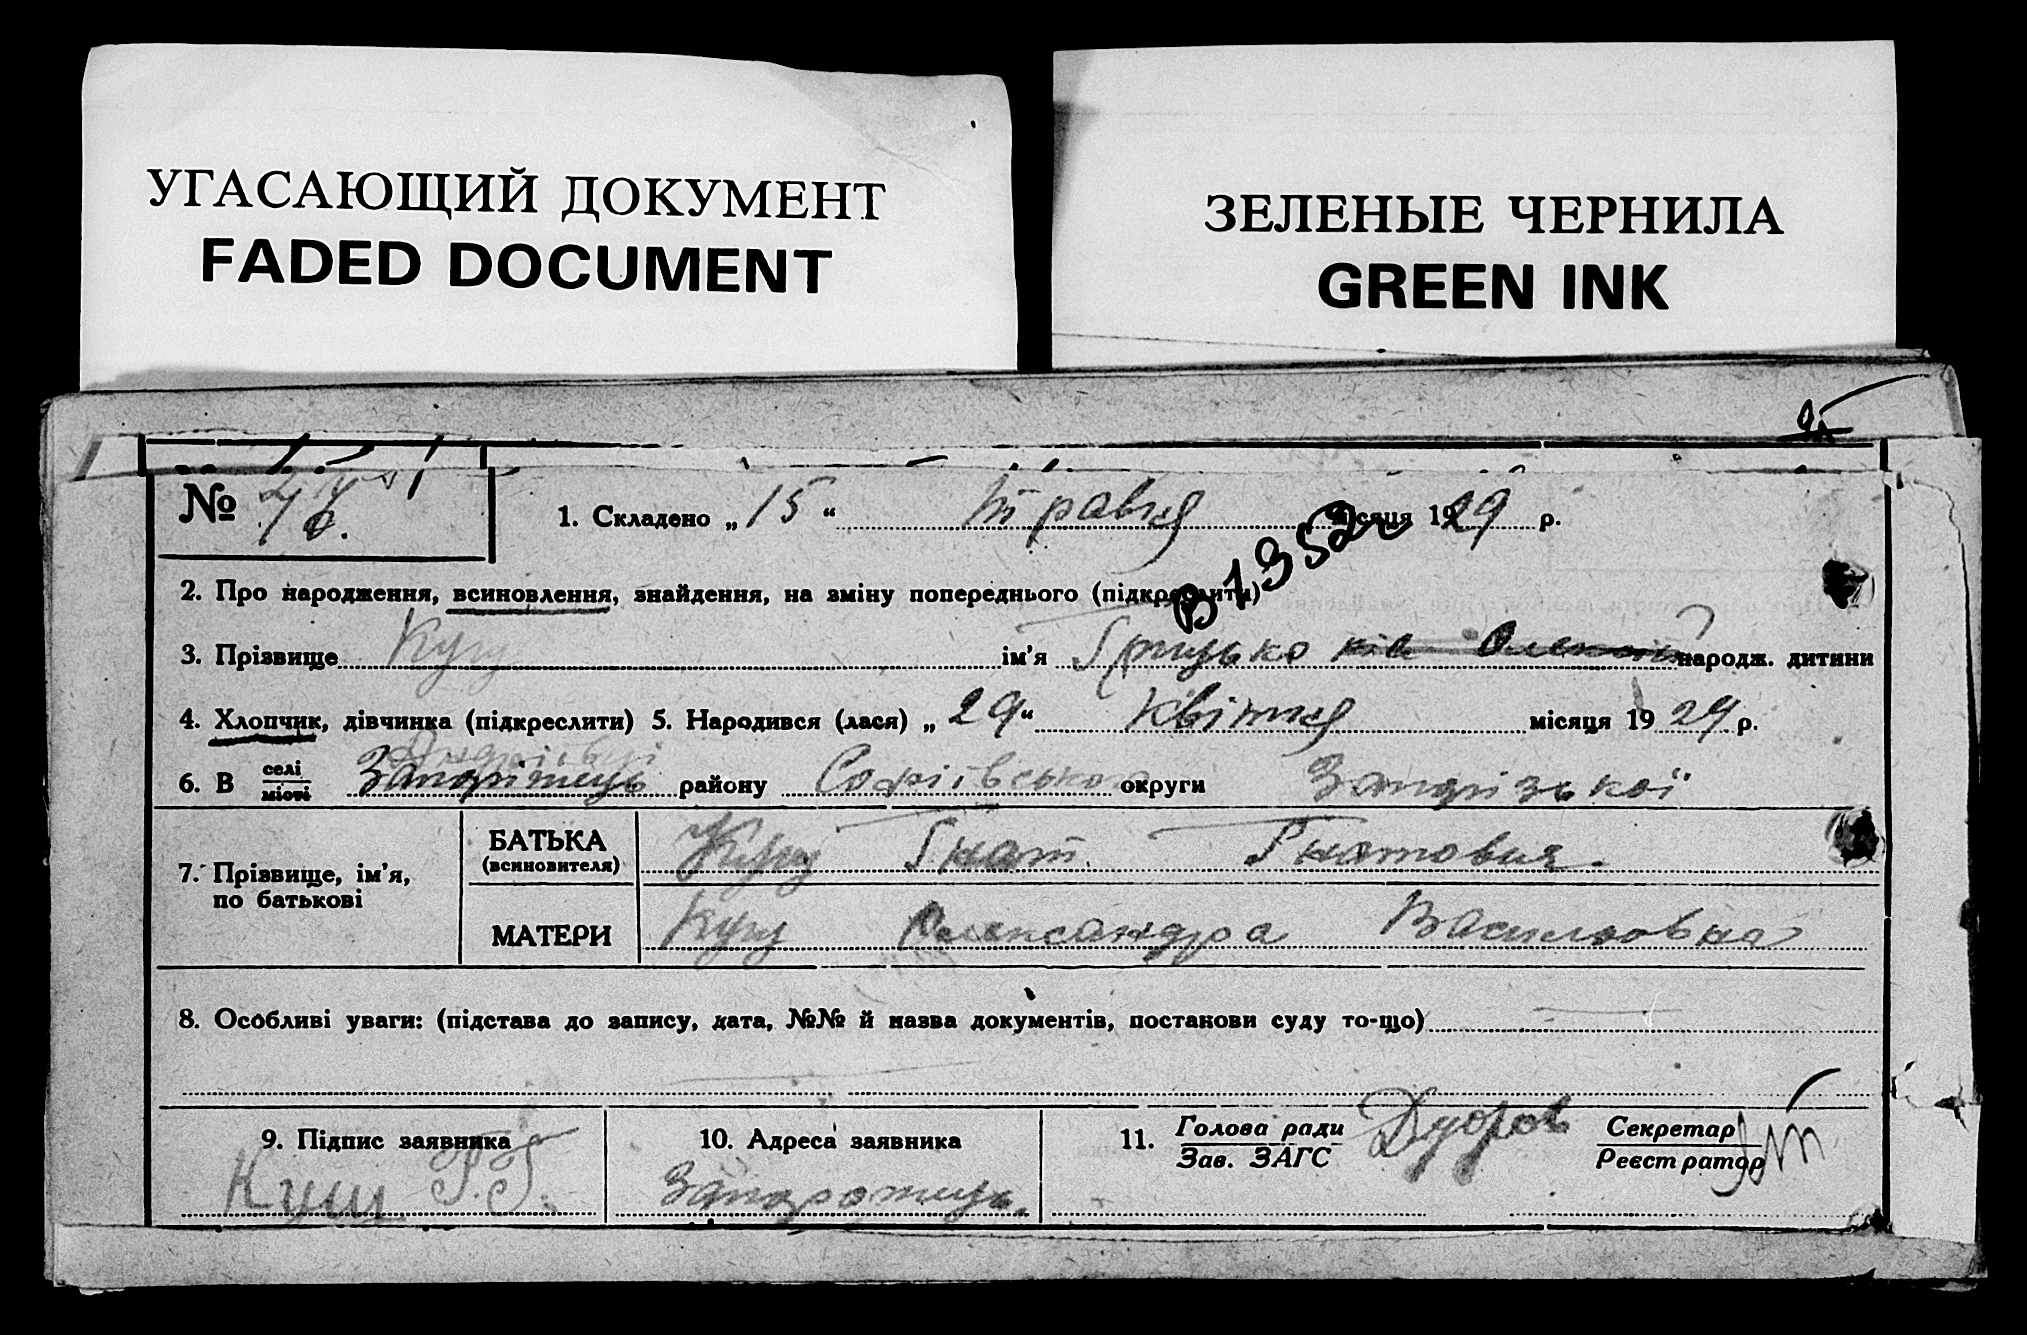 УГАСАЮЩИЙ ДОКУМЕНТ
FADED DOCUMENT
ЗЕЛЕНЫЕ ЧЕРНИЛА
GREEN INK
№
1. Складено „15“ травня місяця 1929 р.
В 1952
2. Про народження, всиновлення, знайдення, на зміну попереднього (підкреслити)
3. Прізвище Кущ ім’я Грицько народж. дитини
4. Хлопчик, дівчинка (підкреслити) 5. Народився (лася) „29“ квітня місяця 1929 р.
6. В селі місті Запоріжець району Софіївського округи Запорізької
7. Прізвище, ім’я, по батькові
БАТЬКА (всиновителя) Кущ Гнат Гнатович.
МАТЕРИ Кущ Олександра Васильовна
8. Особливі уваги: (підстава до запису, дата, №№ й назва документів, постанови суду то-що)
9. Підпис заявника
10. Адреса заявника
11. Голова ради Зав. ЗАГС
Секретар Реєстратор
Кущ Г. Г.